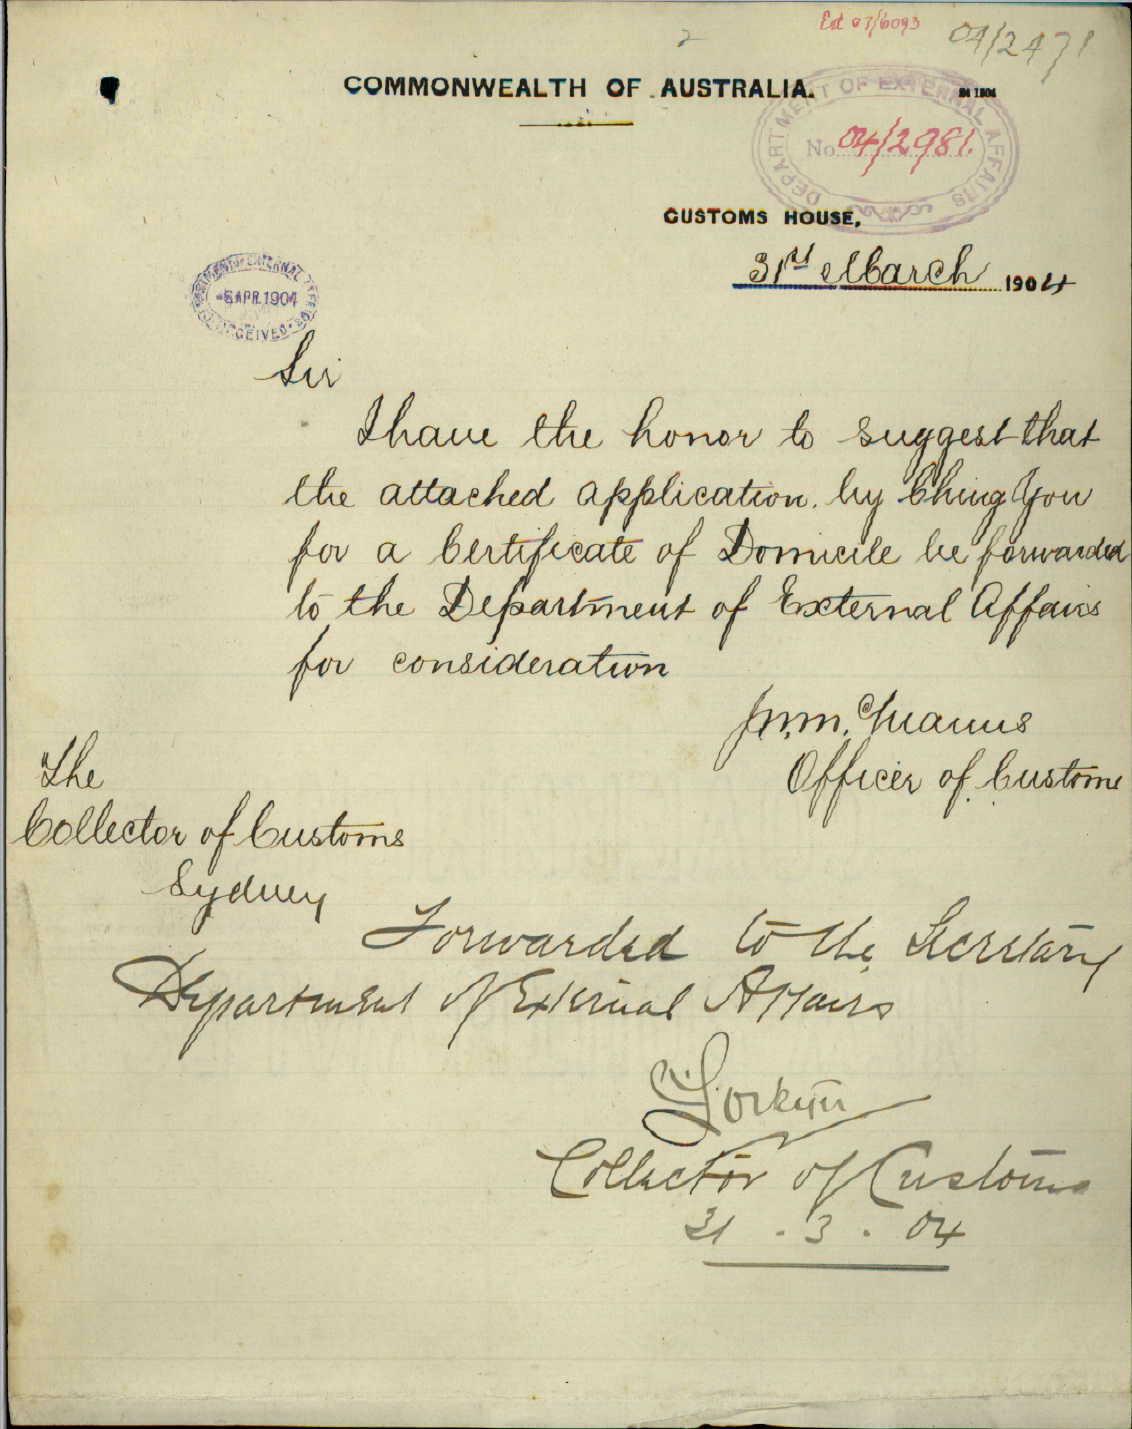 2
Ed 07/6093
04/2471
COMMONWEALTH OF AUSTRALIA.
DEPARTMENT OF EXTERNAL AFFAIRS
No. 04/2981.
CUSTOMS HOUSE,
31st March 1904
EXTERNAL
5 APR. 1904
RECEIVED
Sir
I have the honor to suggest that
the attached application. by Ching You
for a Certificate of Domicile be forwarded
to the Department of External Affairs
for consideration
Officer of Customs
The
Collector of Customs
Sydney
Forwarded to the Secretary
Department of External Affairs
Collector of Customs
31 . 3 . 04